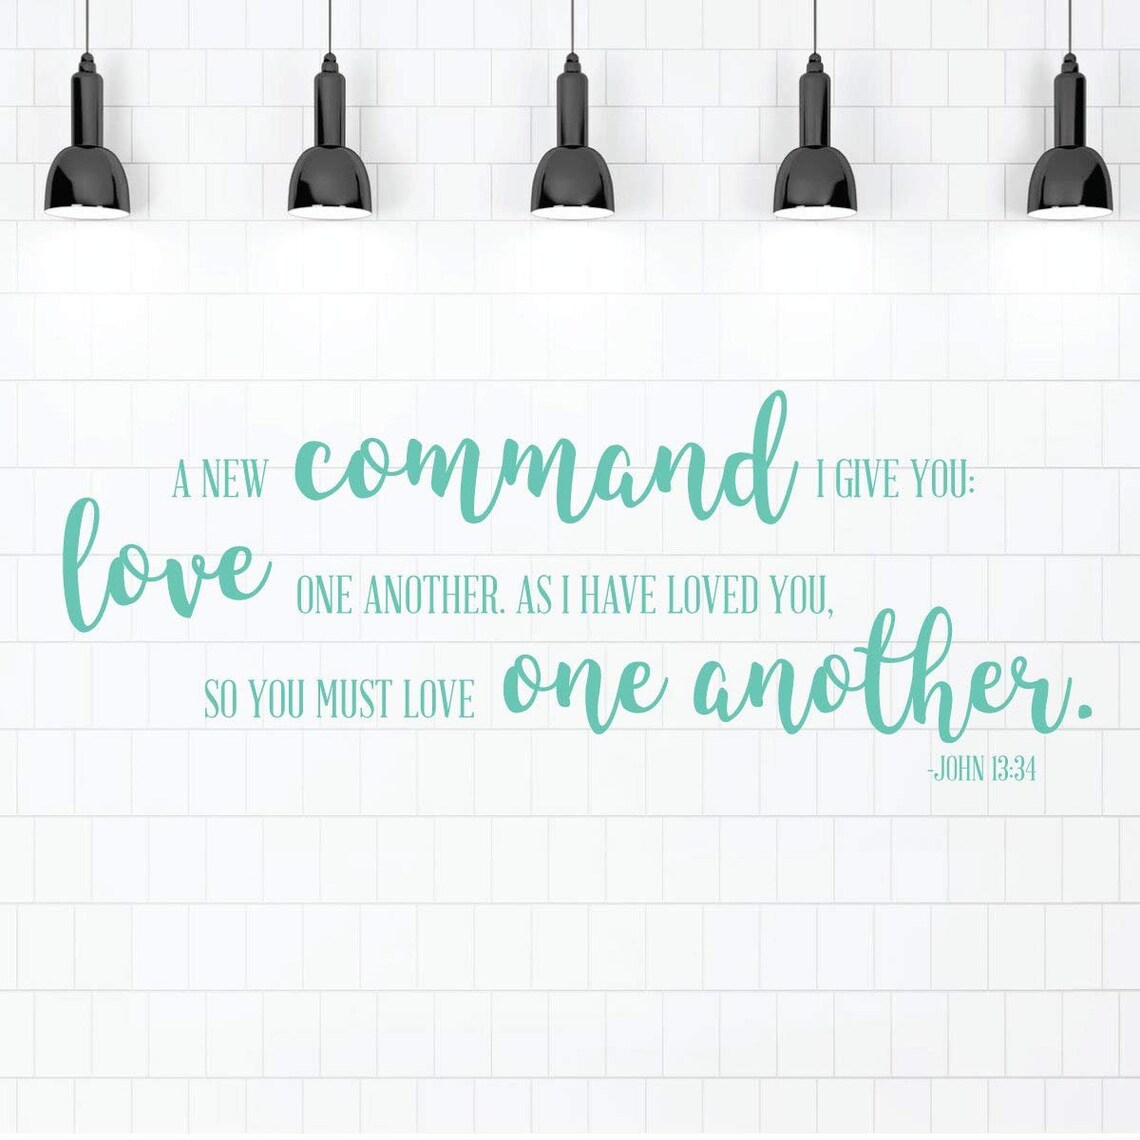 A NEW command I GIVE YOU:
love ONE ANOTHER. AS I HAVE LOVED YOU,
SO YOU MUST LOVE one another.
-JOHN 13:34